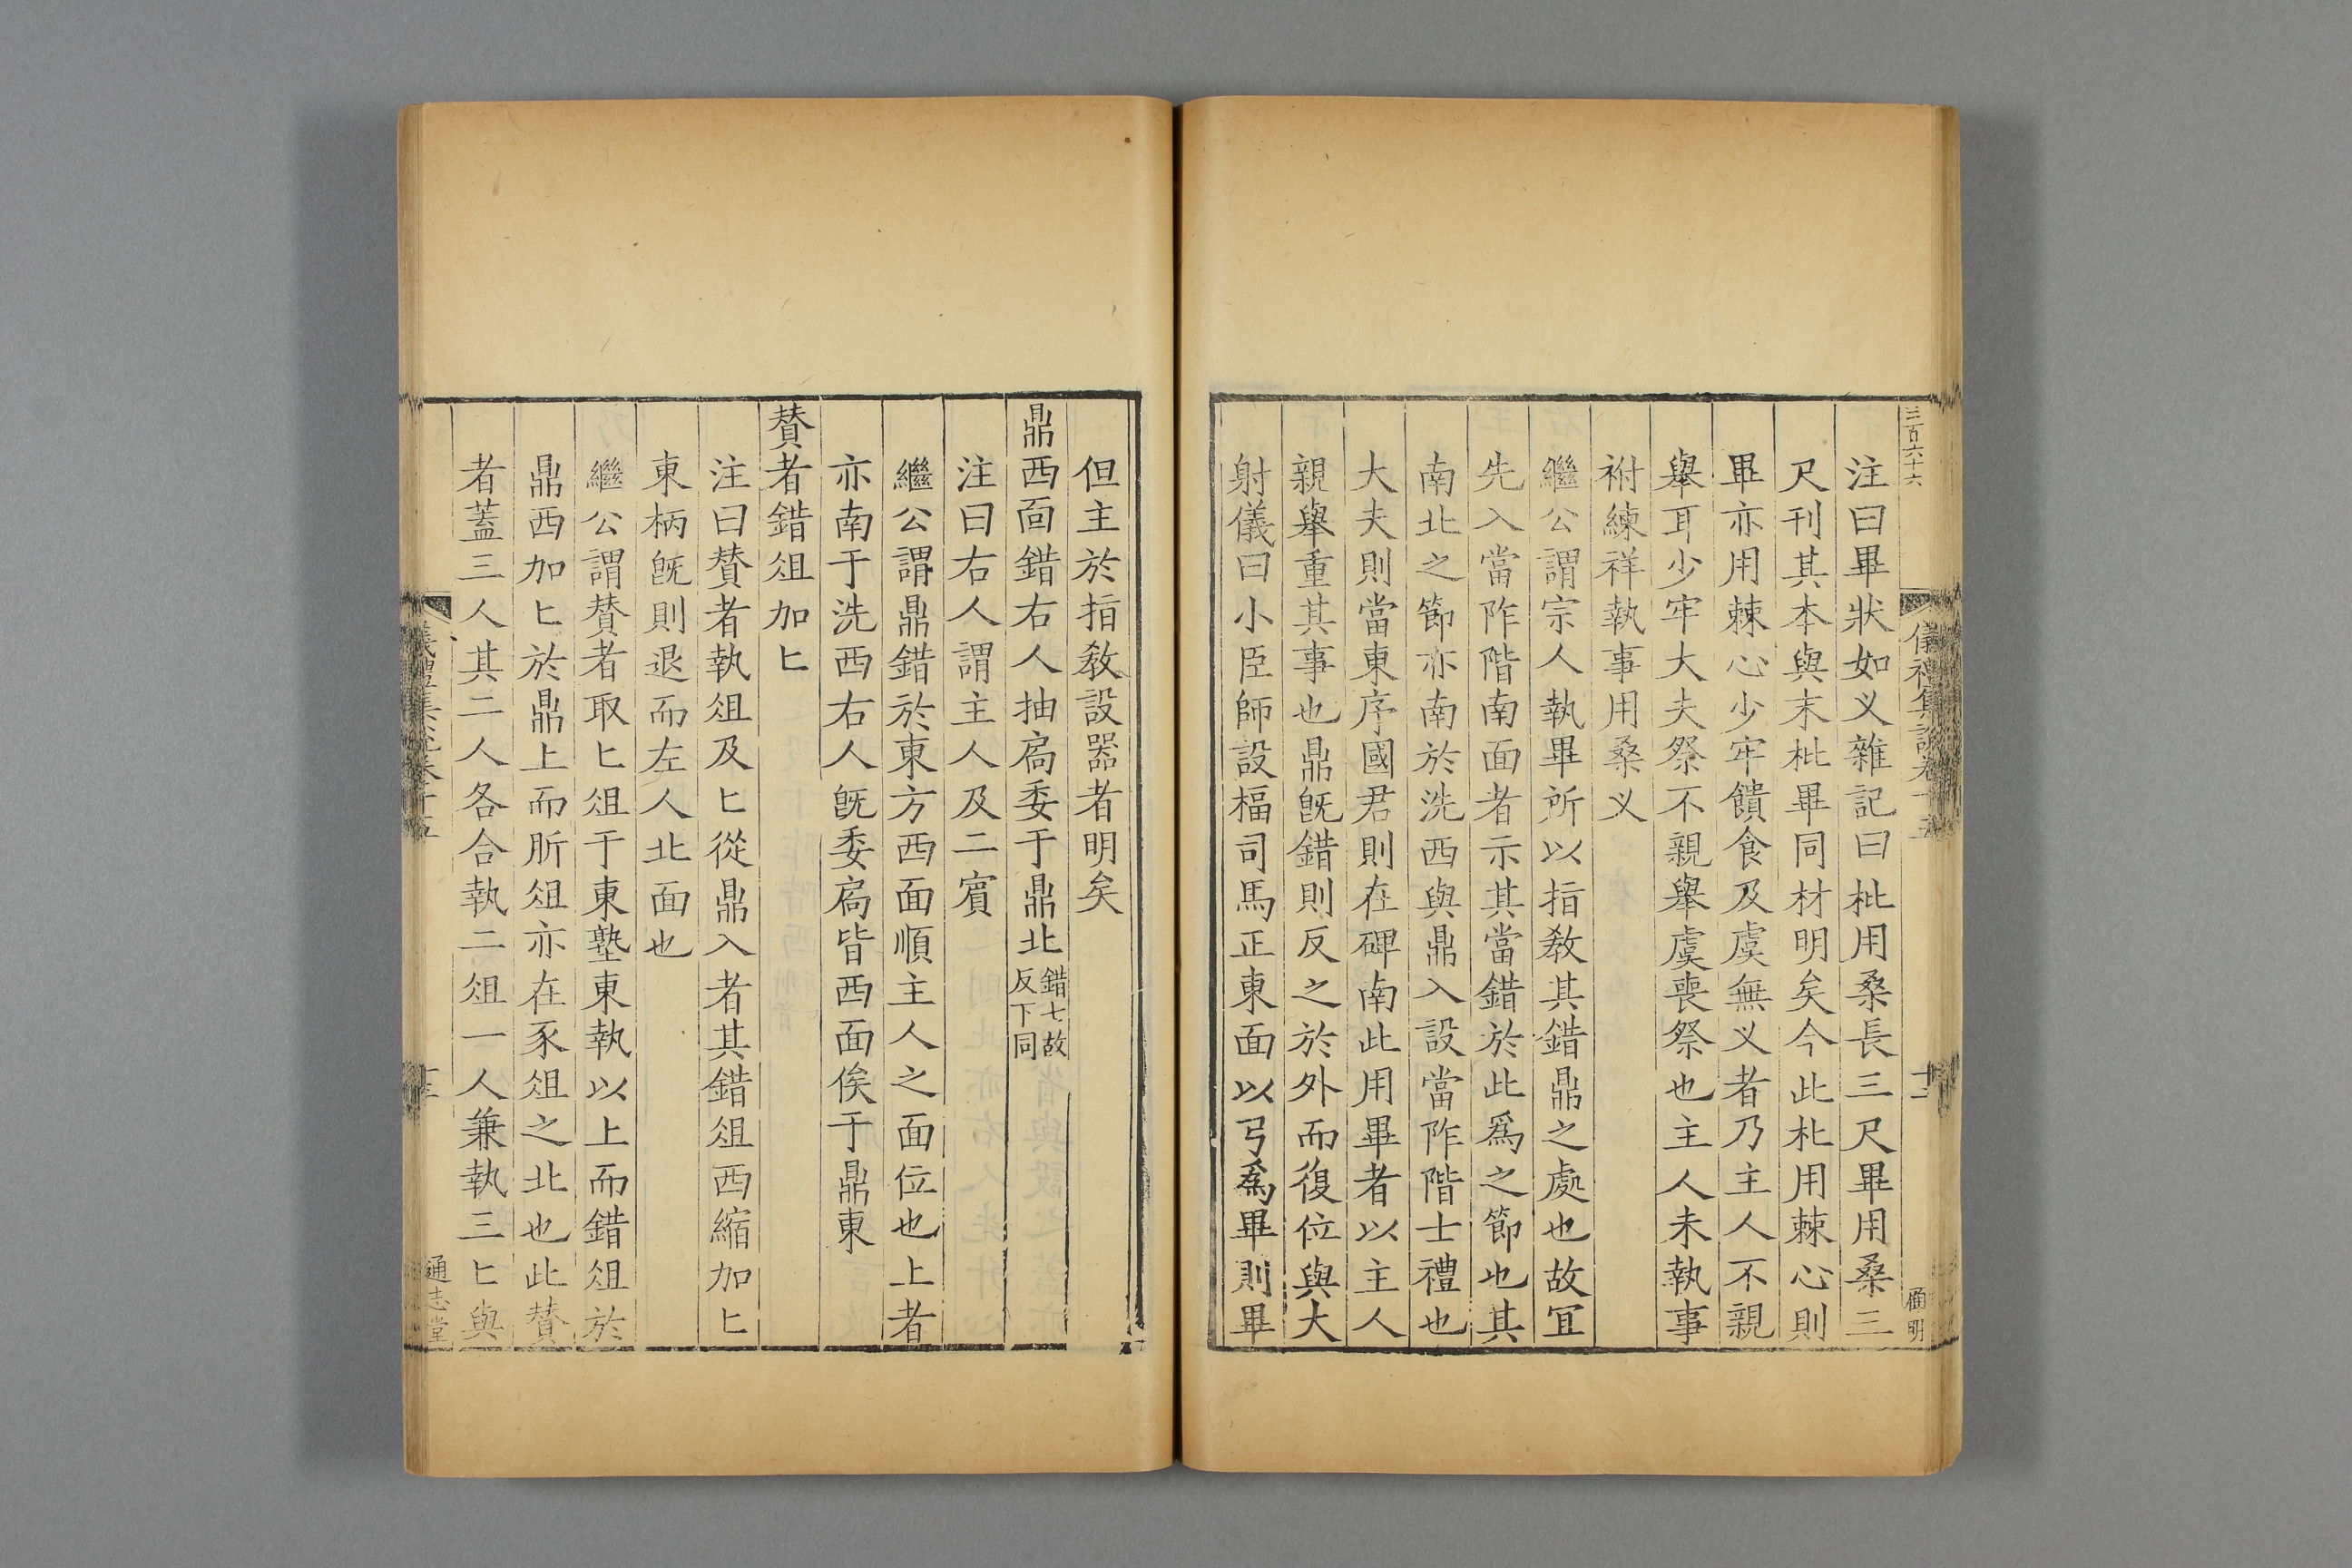 三百六十六
十二
顧明
注曰畢狀如义雜記曰枇用桑長三尺畢用桑三
尺刊其本與末枇畢同材明矣今此朼用棘心則
畢亦用棘心少牢饋食及虞無义者乃主人不親
舉耳少牢大夫祭不親舉虞喪祭也主人未執事
祔練祥執事用桑义
繼公謂宗人執畢所以指教其錯鼎之處也故冝
先入當阼階南面者示其當錯於此爲之節也其
南北之節亦南於洗西與鼎入設當阼階士禮也
大夫則當東序國君則在碑南此用畢者以主人
親舉重其事也鼎旣錯則反之於外而復位與大
射儀曰小臣師設楅司馬正東面以弓爲畢則畢
但主於指教設噐者明矣
鼎西面錯右人抽扃委于鼎北錯七故反下同
注曰右人謂主人及二賓
繼公謂鼎錯於東方西面順主人之面位也上者
亦南于洗西右人旣委扃皆西面俟于鼎東
賛者錯俎加匕
注曰賛者執俎及匕從鼎入者其錯俎西縮加匕
東柄旣則退而左人北面也
繼公謂賛者取匕俎于東塾東執以上而錯俎於
鼎西加匕於鼎上而肵俎亦在豕俎之北也此賛
者蓋三人其二人各合執二俎一人兼執三匕與
通志堂